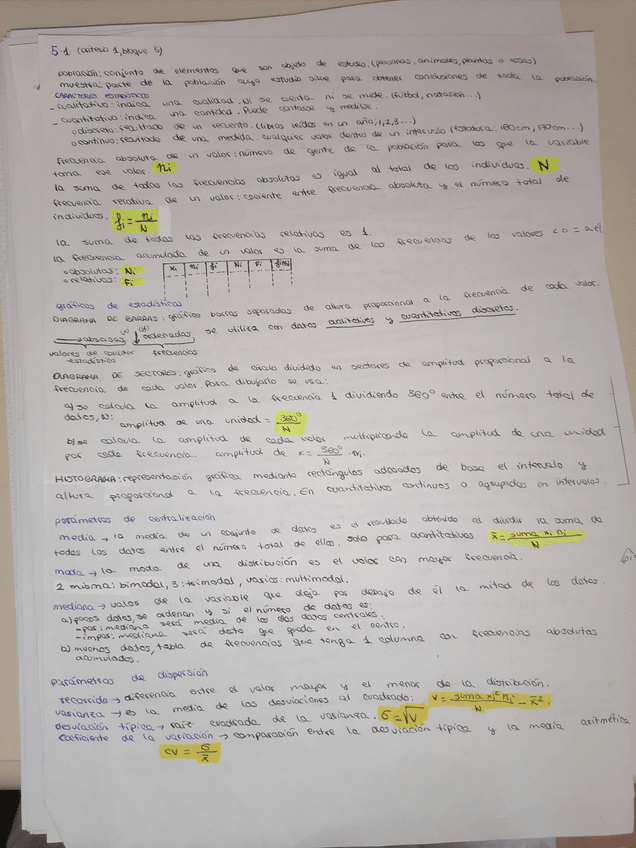 5.1 (criterio 1, bloque 5)
población: conjunto de elementos que son objeto de estudio. (personas, animales, plantas o cosas)
muestra: parte de la población cuyo estudio sirve para obtener conclusiones de toda la población.
CARACTERES ESTADÍSTICOS
- cualitativo: indica una cualidad. Ni se cuenta ni se mide. (fútbol, natación...)
- cuantitativo: indica una cantidad. Puede contarse y medirse.
o discreto: resultado de un recuento. (libros leídos en un año; 1, 2, 3...)
o continuo: resultado de una medida, cualquier valor dentro de un intervalo (estatura: 180cm, 170cm...)
frecuencia absoluta de un valor: número de gente de la población para los que la variable
toma ese valor. ni
la suma de todas las frecuencias absolutas es igual al total de los individuos. N
frecuencia relativa de un valor: cociente entre frecuencia absoluta y el número total de
individuos. fi = ni/N
la suma de todas las frecuencias relativas es 1
la frecuencia acumulada de un valor es la suma de las frecuencias de los valores < o = a él
o absolutas: Ni
o relativas: Fi
xi ni fi Ni Fi
gráficos de estadísticas
DIAGRAMA DE BARRAS: gráfico barras separadas de altura proporcional a la frecuencia de cada valor.
abscisas (x) ordenadas (y) se utiliza con datos cualitativos y cuantitativos discretos.
valores de carácter estadístico frecuencias
DIAGRAMA DE SECTORES: gráfico de círculo dividido en sectores de amplitud proporcional a la
frecuencia de cada valor. Para dibujarlo se usa:
a) se calcula la amplitud a la frecuencia 1 dividiendo 360º entre el número total de
datos, N: amplitud de una unidad = 360º/N
b) se calcula la amplitud de cada valor multiplicando la amplitud de una unidad
por cada frecuencia. amplitud de x = 360º/N · ni
HISTOGRAMA: representación gráfica mediante rectángulos adosados de base el intervalo y
altura proporcional a la frecuencia. En cuantitativos continuos o agrupados en intervalos.
parámetros de centralización
media → la media de un conjunto de datos es el resultado obtenido al dividir la suma de
todos los datos entre el número total de ellos. solo para cuantitativos x̄ = suma xi ni/N
moda → la moda de una distribución es el valor con mayor frecuencia.
2 misma: bimodal, 3: trimodal, varios: multimodal.
mediana → valor de la variable que deja por debajo de él la mitad de los datos.
a) pocos datos, se ordenan y si el número de datos es:
- par: mediana será media de los dos datos centrales.
- impar: mediana será dato que queda en el centro.
b) muchos datos, tabla de frecuencias que tenga 1 columna con frecuencias absolutas
acumuladas.
parámetros de dispersión
recorrido → diferencia entre el valor mayor y el menor de la distribución.
varianza → es la media de las desviaciones al cuadrado: V = suma xi² ni/N - x̄².
desviación típica → raíz cuadrada de la varianza. σ = √V
coeficiente de la variación → comparación entre la desviación típica y la media aritmética
CV = σ/x̄